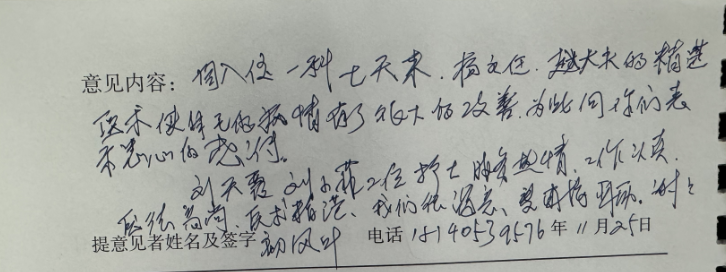 意见内容：自入住一科七天来，杨主任、赵大夫的精选
医术使我的病情有了很大的改善，为此向你们表
示衷心的感谢。
刘天 刘小菲2位护士服务热情、工作认真，
医德高尚、技术精湛、我们很满意、 谢谢
提意见者姓名及签字 电话 15140539576 年11月25日